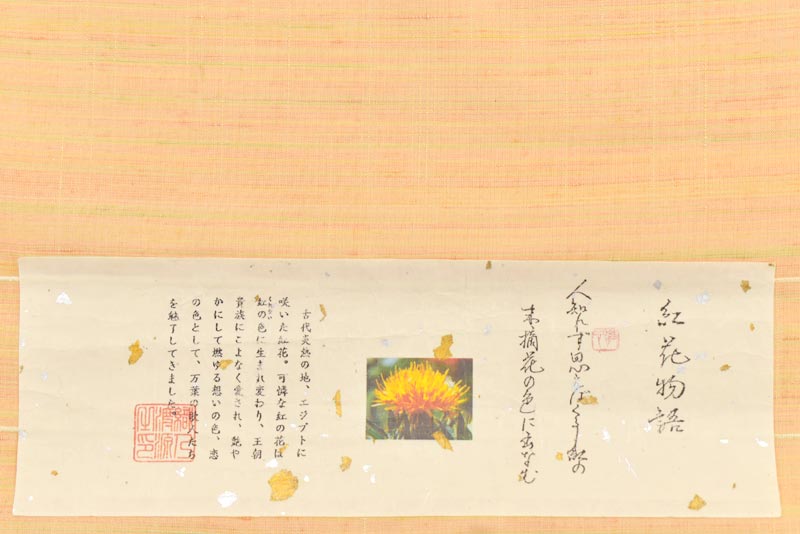 紅花物語
人知れず思へばくるし紅の
末摘花の色に出なむ
古代炎熱の地、エジプトに
咲いた紅花。可憐な紅の花は
紅の色に生まれ変わり、王朝
貴族にこよなく愛され、艶や
かにして燃ゆる想いの色、恋
の色として、万葉の歌人たち
を魅了してきました。